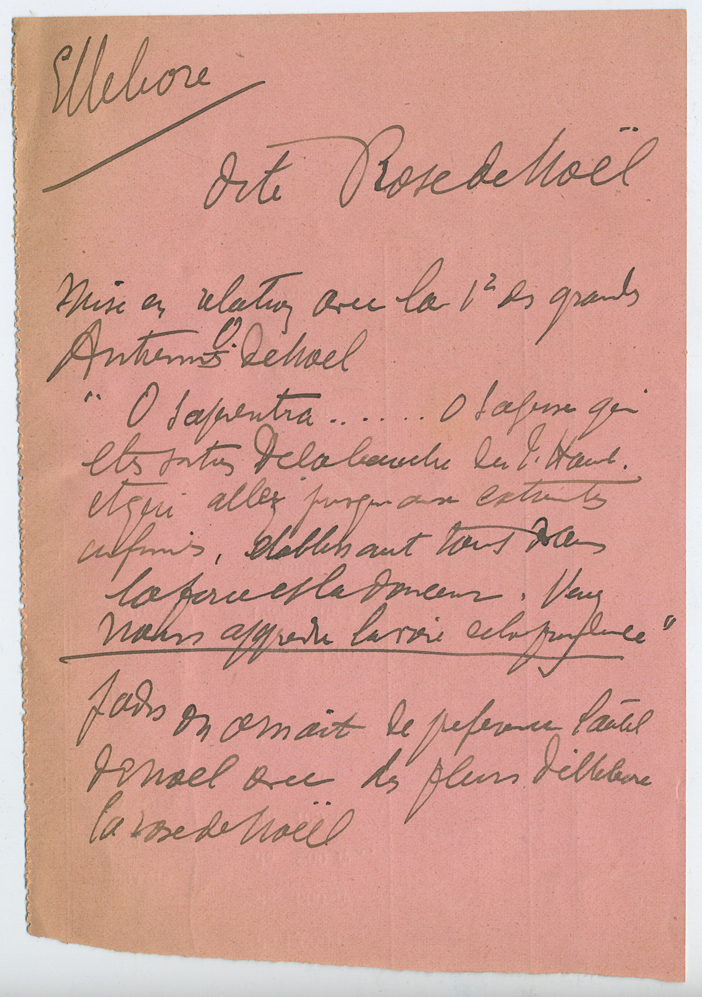 Ellebore
dite Rose de Noël
Mise en relation avec la 1º des grands
Antiennes O de Noel
" O Sapientia ...... O Sagesse qui
etes sortie De la bouche du T. Haut.
et qui allez jusqu'aux extremites
infinies, etablissant tout dans
la force et la douceur. Venez
Nous apprendre la voie de la prudence "
Jadis on ornait de preference l'autel
de Noel avec des fleurs d'ellebore
la rose de Noël